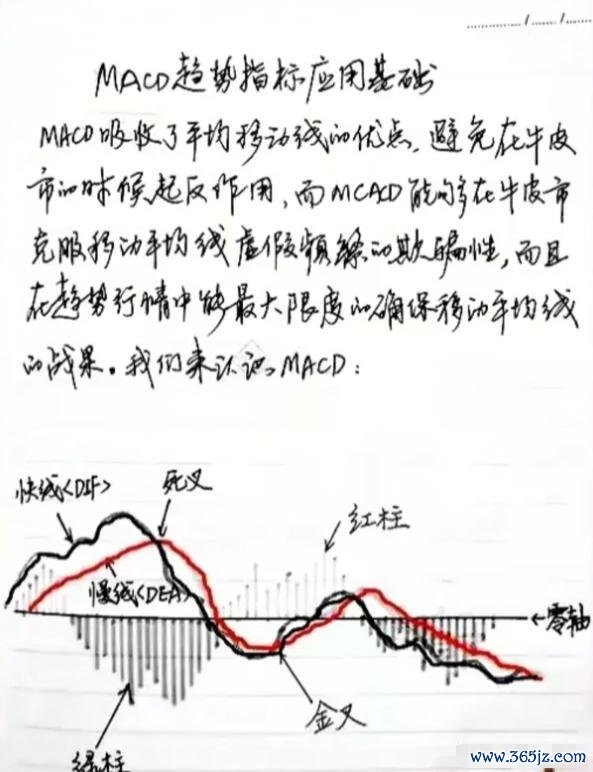 MACD趋势指标应用基础
MACD吸收了平均移动线的优点,避免在牛皮
市的时候起反作用,而MCACD能够在牛皮市
克服移动平均线虚假频繁的欺骗性,而且
在趋势行情中能最大限度的确保移动平均线
的战果。我们来认识MACD:
快线<DIF>
死叉
红柱
慢线<DEA>
零轴
金叉
绿柱
www.365jz.com